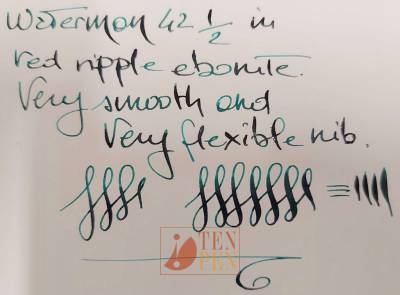 Waterman 42 1/2 in
red ripple ebonite.
Very smooth and
Very flexible nib.
TEN
PEN